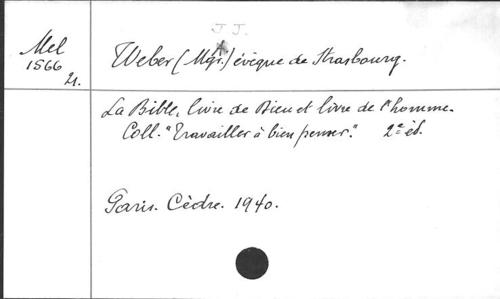 J J.
Mel
1566
21.
Weber (Mgr.) évêque de Strasbourg.
La Bible, livre de Dieu et livre de l'homme.
Coll. "Travailler à bien penser". 2e éd.
Paris. Cèdre. 1940.